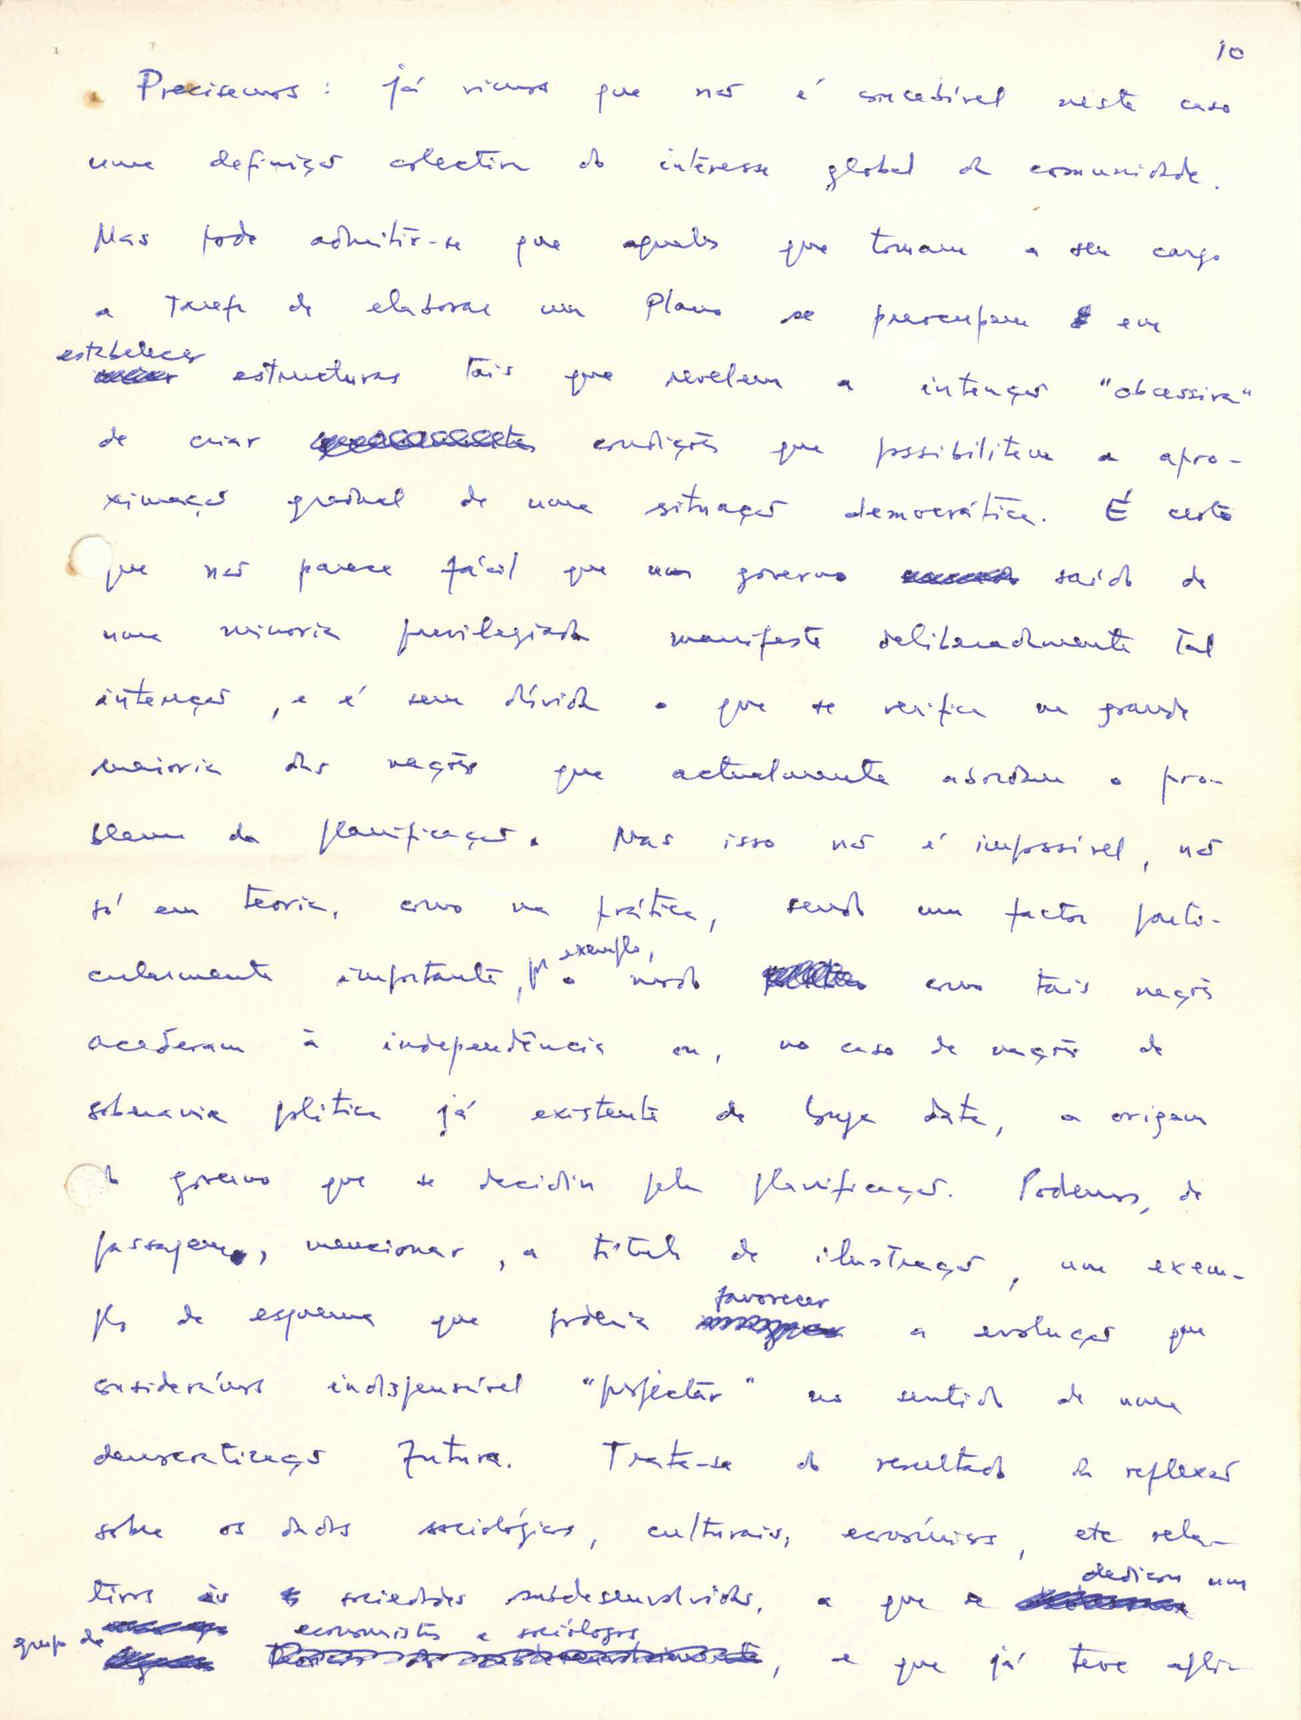 10
Precisemos: já vimos que não é concebível neste caso
uma definição colectiva do interesse global da comunidade.
Mas pode admitir-se que aqueles que tomam a seu cargo
a tarefa de elaborar um Plano se preocupam em
estabelecer
estructuras tais que revelem a intenção "obcessiva"
de criar condições que possibilitem a apro-
ximação gradual de uma situação democrática. É certo
que não parece fácil que um governo saído de
uma minoria previlegiada manifeste deliberadamente tal
intenção, e é sem dúvida o que se verifica na grande
maioria das nações que actualmente abordam o pro-
blema da planificação. Mas isso não é impossível, não
só em teoria, como na prática, sendo um factor parti-
exemplo,
cularmente importante, por o modo como tais nações
acederam à independência ou, no caso de nações de
soberania política já existente de longa data, a origem
do governo que se decidiu pela planificação. Podemos, de
passagem, mencionar, a título de ilustração, um exem-
favorecer
plo de esquema que poderia a evolução que
considerámos indispensável "projectar" no sentido de uma
democratização futura. Trata-se do resultado da reflexão
sobre os dados sociológicos, culturais, económicos, etc rela-
dedicou um
tivos às sociedades subdesenvolvidas, a que se
grupo de economistas e sociólogos
, e que já teve apli-